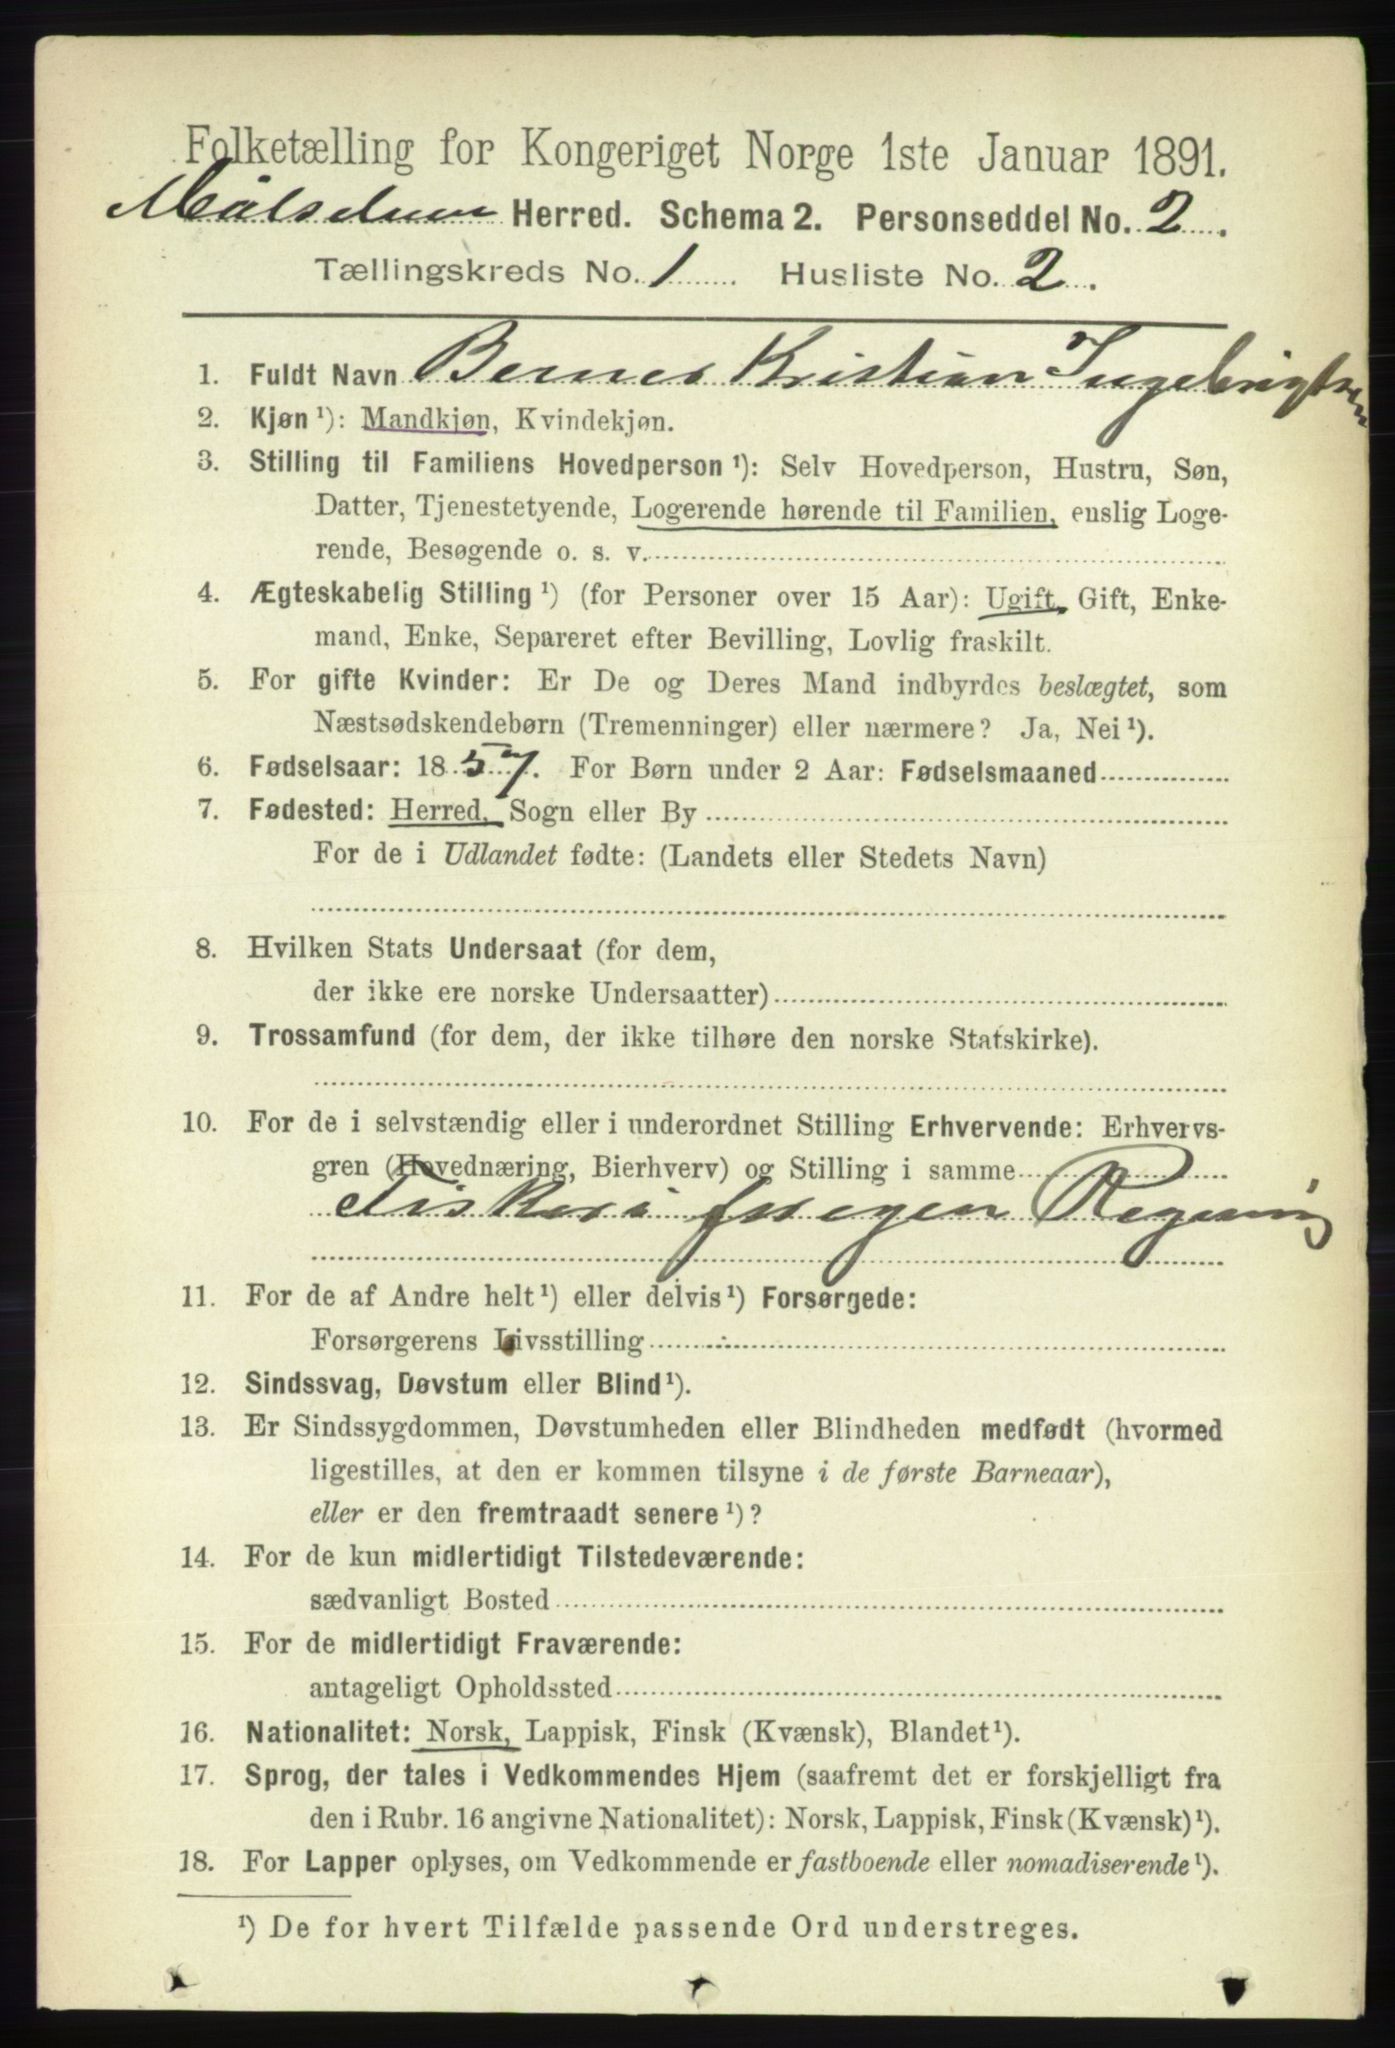 Folketælling for Kongeriget Norge 1ste Januar 1891.
Målselven Herred. Schema 2. Personseddel No. 2.
Tællingskreds No. 1 Husliste No. 2.
1. Fuldt Navn Berner Kristian Ingebrigtsen
2. Kjøn ¹): Mandkjøn, Kvindekjøn.
3. Stilling til Familiens Hovedperson ¹): Selv Hovedperson, Hustru, Søn,
Datter, Tjenestetyende, Logerende hørende til Familien, enslig Loge-
rende, Besøgende o. s. v.
4. Ægteskabelig Stilling ¹) (for Personer over 15 Aar): Ugift, Gift, Enke-
mand, Enke, Separeret efter Bevilling, Lovlig fraskilt.
5. For gifte Kvinder: Er De og Deres Mand indbyrdes beslægtet, som
Næstsødskendebørn (Tremenninger) eller nærmere? Ja, Nei ¹).
6. Fødselsaar: 1857. For Børn under 2 Aar: Fødselsmaaned
7. Fødested: Herred, Sogn eller By
For de i Udlandet fødte: (Landets eller Stedets Navn)
8. Hvilken Stats Undersaat (for dem,
der ikke ere norske Undersaatter)
9. Trossamfund (for dem, der ikke tilhøre den norske Statskirke).
10. For de i selvstændig eller i underordnet Stilling Erhvervende: Erhvervs-
gren (Hovednæring, Bierhverv) og Stilling i samme
Fisker for egen Regning
11. For de af Andre helt ¹) eller delvis ¹) Forsørgede:
Forsørgerens Livsstilling
12. Sindssvag, Døvstum eller Blind ¹).
13. Er Sindssygdommen, Døvstumheden eller Blindheden medfødt (hvormed
ligestilles, at den er kommen tilsyne i de første Barneaar),
eller er den fremtraadt senere ¹)?
14. For de kun midlertidigt Tilstedeværende:
sædvanligt Bosted
15. For de midlertidigt Fraværende:
antageligt Opholdssted
16. Nationalitet: Norsk, Lappisk, Finsk (Kvænsk), Blandet ¹).
17. Sprog, der tales i Vedkommendes Hjem (saafremt det er forskjelligt fra
den i Rubr. 16 angivne Nationalitet): Norsk, Lappisk, Finsk (Kvænsk) ¹).
18. For Lapper oplyses, om Vedkommende er fastboende eller nomadiserende ¹).
¹) De for hvert Tilfælde passende Ord understreges.